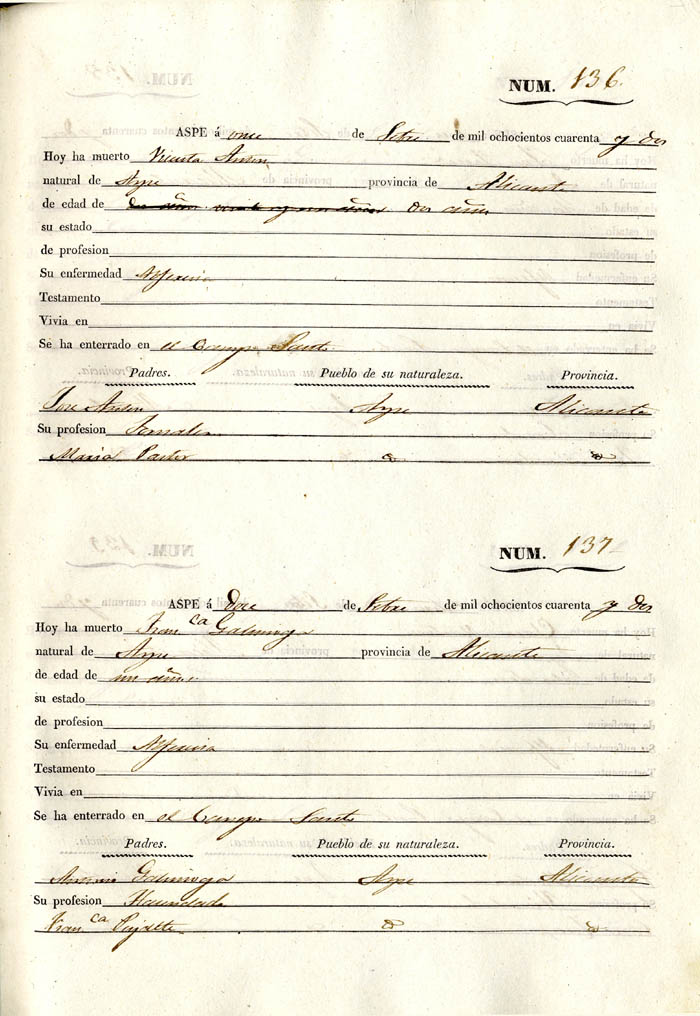 NUM. 136.
ASPE á once de Setbre de mil ochocientos cuarenta y dos
Hoy ha muerto Vicenta Anton
natural de Aspe provincia de Alicante
de edad de dos años
su estado
de profesion
Su enfermedad Alferecia
Testamento
Vivia en
Se ha enterrado en el Campo Santo
Padres. Pueblo de su naturaleza. Provincia.
Jose Anton Aspe Alicante
Su profesion Jornalero
Maria Pastor
NUM. 137
ASPE á doce de Setbre de mil ochocientos cuarenta y dos
Hoy ha muerto Franca
natural de Aspe provincia de Alicante
de edad de un año.
su estado
de profesion
Su enfermedad Alferecia
Testamento
Vivia en
Se ha enterrado en el Campo Santo
Padres. Pueblo de su naturaleza. Provincia.
Antonio Aspe Alicante
Su profesion Hacendado
Franca